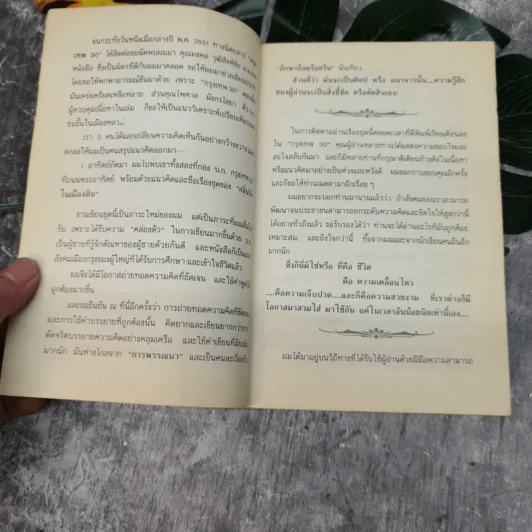 จนกระทั่งวันหนึ่งเมื่อกลางปี พ.ศ. 2531 ทางนิตยสาร "กรุง
เทพ 30" ได้ติดต่อขอนัดพบผมมา คุณมงคล
หนังสือ ซึ่งเป็นมิตรที่ดีกับผมมาตลอด ขอให้ผมมาช่วย
โดยขอให้พกพาอารมณ์ขันมาด้วย เพราะ "กรุงเทพ 30"
มันเคร่งเครียดเหลือหลาย ส่วนคุณไพศาล มังกรไชยา
ผู้ควบคุมเนื้อหาในเล่ม ก็ขอให้เป็นแนววิเคราะห์เปรียบเทียบ
ชนชั้นในเมืองหลวง
เรา 3 คนได้แลกเปลี่ยนความคิดเห็นกันอย่างกว้างขวาง
ตกลงให้ผมเป็นคนสรุปแนวคิดออกมา
1 อาทิตย์ถัดมา ผมไปพบเขาทั้งสองที่กอง บ.ก. กรุงเทพ
ที่ถนนพระอาทิตย์ พร้อมด้วยแนวคิดและชื่อเรื่องชุดของ
ในเมืองดิบ"
งานเขียนชุดนี้เป็นภาระใหม่ของผม แต่เป็นภาระที่ผมเต็มใจ
รับ เพราะได้รับความ "คล่องตัว" ในการเขียนมากขึ้นด้วย
เป็นผู้ชายที่รู้จักตัณหาของผู้ชายด้วยกันดี และหนังสือก็เป็น
สังคมเมืองกรุงของผู้ใหญ่ที่ได้รับการศึกษา และเข้าใจชีวิตแล้ว
ผมจึงได้มีโอกาสถ่ายทอดความคิดที่ชัดเจน และใช้คำพูด
ถูกต้องมากขึ้น
และขอยืนยัน ณ ที่นี้อีกครั้งว่า การถ่ายทอดความคิดที่ชัดเจน
และการใช้คำบรรยายที่ถูกต้องนั้น คิดยากและเขียนยากกว่า
ดัดจริตบรรยายความคิดอย่างคลุมเครือ และใช้คำเขียนที่
มากนัก มันห่างไกลจาก "การพรรณนา" และเป็นคนละเรื่อง
"ลักษวกิลครีดหริน" นั่นเทียว
ส่วนที่ว่า มันจะเป็นศิลป หรือ อนาจารนั้น....ความรู้สึก
ของผู้อ่านจะเป็นสิ่งชี้ชัด หรือตัดสินเอง!
ในการติดตามอ่านเรื่องชุดนี้ตลอดเวลาที่ตีพิมพ์เรียงเดือนลง
ใน "กรุงเทพ 30" คุณผู้อ่านหลายท่านได้แสดงความชอบใจและ
สะใจสลับกันมา และก็มีหลายท่านที่กรุณาติเตียนท้วงติงในเนื้อหา
หรือแนวคิดมาอย่างเป็นห่วงและหวังดี ผมขอกราบขอบคุณอีกครั้ง
และก็ขอให้ท่านเมตตามาอีกเรื่อย ๆ
ผมอยากจะบอกท่านมานานแล้วว่า ถ้าสังคมของเราสามารถ
พัฒนาจนประชาชนสามารถยกระดับความคิดและจิตใจให้สูงกว่านี้
ได้อย่างทั่วถึงแล้ว ขอรับรองได้ว่า ท่านจะได้อ่านอะไรที่มันถูกต้อง,
เหมาะสม. และถึงใจกว่านี้ ทั้งจากผมและจากนักเขียนคนอื่นอีก
มากนัก
ซึ่งก็นี่มิใช่หรือ ที่คือ ชีวิต
คือ ความเคลื่อนไหว
....คือความเจ็บปวด....และก็คือความสวยงาม ที่เราต่างก็มี
โอกาสมาสวมใส่ มาใช้กัน แค่ในเวลาอันน้อยนิดเท่านี้เอง....
ผมได้มาอยู่บนวิถีทางที่ได้รับใช้ผู้อ่านด้วยฝีมือความสามารถ